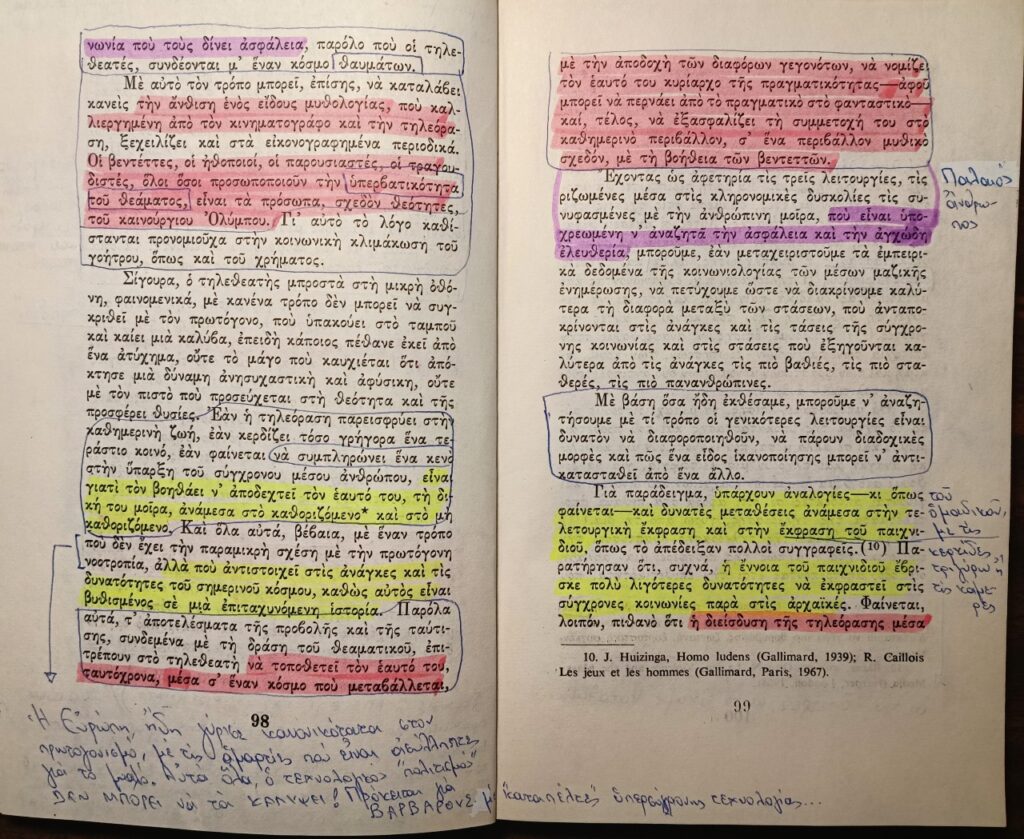 νωνία ποὺ τοὺς δίνει ἀσφάλεια, παρόλο ποὺ οἱ τηλε-
θεατές, συνδέονται μ' ἕναν κόσμο θαυμάτων.
Μὲ αὐτὸ τὸν τρόπο μπορεῖ, ἐπίσης, νὰ καταλάβει
κανεὶς τὴν ἄνθιση ἑνὸς εἴδους μυθολογίας, ποὺ καλ-
λιεργημένη ἀπὸ τὸν κινηματογράφο καὶ τὴν τηλεόρα-
ση, ξεχειλίζει καὶ στὰ εἰκονογραφημένα περιοδικά.
Οἱ βεντέττες, οἱ ἠθοποιοί, οἱ παρουσιαστές, οἱ τραγου-
διστές, ὅλοι ὅσοι προσωποποιοῦν τὴν ὑπερβατικότητα
τοῦ θεάματος, εἶναι τὰ πρόσωπα, σχεδὸν θεότητες,
τοῦ καινούργιου Ὀλύμπου. Γι' αὐτὸ τὸ λόγο καθί-
στανται προνομιοῦχα στὴν κοινωνικὴ κλιμάκωση τοῦ
γοήτρου, ὅπως καὶ τοῦ χρήματος.
Σίγουρα, ὁ τηλεθεατὴς μπροστὰ στὴ μικρὴ ὀθό-
νη, φαινομενικά, μὲ κανένα τρόπο δὲν μπορεῖ νὰ συγ-
κριθεῖ μὲ τὸν πρωτόγονο, ποὺ ὑπακούει στὸ ταμποῦ
καὶ καίει μιὰ καλύβα, ἐπειδὴ κάποιος πέθανε ἐκεῖ ἀπὸ
ἕνα ἀτύχημα, οὔτε τὸ μάγο ποὺ καυχιέται ὅτι ἀπό-
κτησε μιὰ δύναμη ἀνησυχαστικὴ καὶ ἀφύσικη, οὔτε
μὲ τὸν πιστὸ ποὺ προσεύχεται στὴ θεότητα καὶ τῆς
προσφέρει θυσίες. Ἐὰν ἡ τηλεόραση παρεισφρύει στὴν
καθημερινὴ ζωή, ἐὰν κερδίζει τόσο γρήγορα ἕνα τε-
ράστιο κοινό, ἐὰν φαίνεται νὰ συμπληρώνει ἕνα κενὸ
στὴν ὕπαρξη τοῦ σύγχρονου μέσου ἀνθρώπου, εἶναι
γιατὶ τὸν βοηθάει ν' ἀποδεχτεῖ τὸν ἑαυτό του, τὴ δι-
κή του μοίρα, ἀνάμεσα στὸ καθοριζόμενο* καὶ στὸ μὴ
καθοριζόμενο. Καὶ ὅλα αὐτά, βέβαια, μὲ ἕναν τρόπο
ποὺ δὲν ἔχει τὴν παραμικρὴ σχέση μὲ τὴν πρωτόγονη
νοοτροπία, ἀλλὰ ποὺ ἀντιστοιχεῖ στὶς ἀνάγκες καὶ τὶς
δυνατότητες τοῦ σημερινοῦ κόσμου, καθὼς αὐτὸς εἶναι
βυθισμένος σὲ μιὰ ἐπιταχυνόμενη ἱστορία. Παρόλα
αὐτά, τ' ἀποτελέσματα τῆς προβολῆς καὶ τῆς ταύτι-
σης, συνδεμένα μὲ τὴ δράση τοῦ θεαματικοῦ, ἐπι-
τρέπουν στὸ τηλεθεατὴ νὰ τοποθετεῖ τὸν ἑαυτό του,
ταυτόχρονα, μέσα σ' ἕναν κόσμο ποὺ μεταβάλλεται,
98
Ἡ Εὐρώπη, ἤδη γύρισε κανονικότατα στον
πρωτογονισμό, μὲ τὶς ποὺ εἶναι ἀσύλληπτες
γιὰ τὸ μυαλό. Αὐτὰ ὅλα, ὁ τεχνολογικὸς "πολιτισμὸς"
ΔΕΝ ΜΠΟΡΕΙ νὰ τὰ ΚΑΛΥΨΕΙ! Πρόκειται γιὰ
ΒΑΡΒΑΡΟΥΣ μὲ "καταπέλτες" ὑπερσύγχρονης τεχνολογίας...
μὲ τὴν ἀποδοχὴ τῶν διαφόρων γεγονότων, νὰ νομίζει
τὸν ἑαυτό του κυρίαρχο τῆς πραγματικότητας—ἀφοῦ
μπορεῖ νὰ περνάει ἀπὸ τὸ πραγματικὸ στὸ φανταστικὸ—
καί, τέλος, νὰ ἐξασφαλίζει τὴ συμμετοχή του στὸ
καθημερινὸ περιβάλλον, σ' ἕνα περιβάλλον μυθικὸ
σχεδόν, μὲ τὴ βοήθεια τῶν βεντεττῶν.
Ἔχοντας ὡς ἀφετηρία τὶς τρεῖς λειτουργίες, τὶς
ριζωμένες μέσα στὶς κληρονομικὲς δυσκολίες τὶς συ-
νυφασμένες μὲ τὴν ἀνθρώπινη μοίρα, ποὺ εἶναι ὑπο-
χρεωμένη ν' ἀναζητᾶ τὴν ἀσφάλεια καὶ τὴν ἀγχώδη
ἐλευθερία, μποροῦμε, ἐὰν μεταχειριστοῦμε τὰ ἐμπειρι-
κὰ δεδομένα τῆς κοινωνιολογίας τῶν μέσων μαζικῆς
ἐνημέρωσης, νὰ πετύχουμε ὥστε νὰ διακρίνουμε καλύ-
τερα τὴ διαφορὰ μεταξὺ τῶν στάσεων, ποὺ ἀνταπο-
κρίνονται στὶς ἀνάγκες καὶ τὶς τάσεις τῆς σύγχρο-
νης κοινωνίας καὶ στὶς στάσεις ποὺ ἐξηγοῦνται κα-
λύτερα ἀπὸ τὶς ἀνάγκες τὶς πιὸ βαθιές, τὶς πιὸ στα-
θερές, τὶς πιὸ πανανθρώπινες.
Μὲ βάση ὅσα ἤδη ἐκθέσαμε, μποροῦμε ν' ἀναζη-
τήσουμε μὲ τί τρόπο οἱ γενικότερες λειτουργίες εἶναι
δυνατὸν νὰ διαφοροποιηθοῦν, νὰ πάρουν διαδοχικὲς
μορφὲς καὶ πῶς ἕνα εἶδος ἱκανοποίησης μπορεῖ ν' ἀντι-
κατασταθεῖ ἀπὸ ἕνα ἄλλο.
Γιὰ παράδειγμα, ὑπάρχουν ἀναλογίες—κι ὅπως
φαίνεται—καὶ δυνατὲς μεταθέσεις ἀνάμεσα στὴν τε-
λετουργικὴ ἔκφραση καὶ στὴν ἔκφραση τοῦ παιχνι-
διοῦ, ὅπως τὸ ἀπέδειξαν πολλοὶ συγγραφεῖς.(10) Πα-
ρατήρησαν ὅτι, συχνά, ἡ ἔννοια τοῦ παιχνιδιοῦ ἔβρι-
σκε πολὺ λιγότερες δυνατότητες νὰ ἐκφραστεῖ στὶς
σύγχρονες κοινωνίες παρὰ στὶς ἀρχαϊκές. Φαίνεται,
λοιπόν, πιθανὸ ὅτι ἡ διείσδυση τῆς τηλεόρασης μέσα
Παλαιὸς
ἄνθρω-
πος
τοῦ
ὁμαδικοῦ,
μὲ τὶς
10. J. Huizinga, Homo ludens (Gallimard, 1939); R. Caillois
Les jeux et les hommes (Gallimard, Paris, 1967).
99